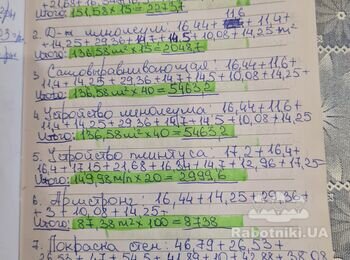 Итого: 151,58 х 15 = 2273
11,6
2. Д-ж линолеум: 16,44 + 11,4 +
+ 14,25 + 29,36 + 14,7 + 14,5 + 10,08 + 14,25 м²
Итого: 136,58 м² х 15 = 2048
3. Самовыравнивающая: 16,44 + 11,6 +
11,4 + 14,25 + 29,36 + 14,7 + 14,5 + 10,08 + 14,25
Итого: 136,58 м² х 40 = 5463,2
4. Устройство линолеума: 16,44 + 11,6 +
+ 11,4 + 14,25 + 29,36 + 14,7 + 14,5 + 10,08 + 14,25
Итого: 136,58 м² х 40 = 5463,2
5. Устройство плинтуса: 17,2 + 16,4 +
+ 16,4 + 17,15 + 21,68 + 16,84 + 14,7 + 12,96 + 17,25
Итого: 149,98 м/п х 20 = 2999,6
6. Армстронг: 16,44 + 14,25 + 29,36 +
+ 3 + 10,08 + 14,25
Итого: 87,38 м² х 100 = 8738
7. Покраска стен: 46,79 + 26,53 +
Rabotniki.UA